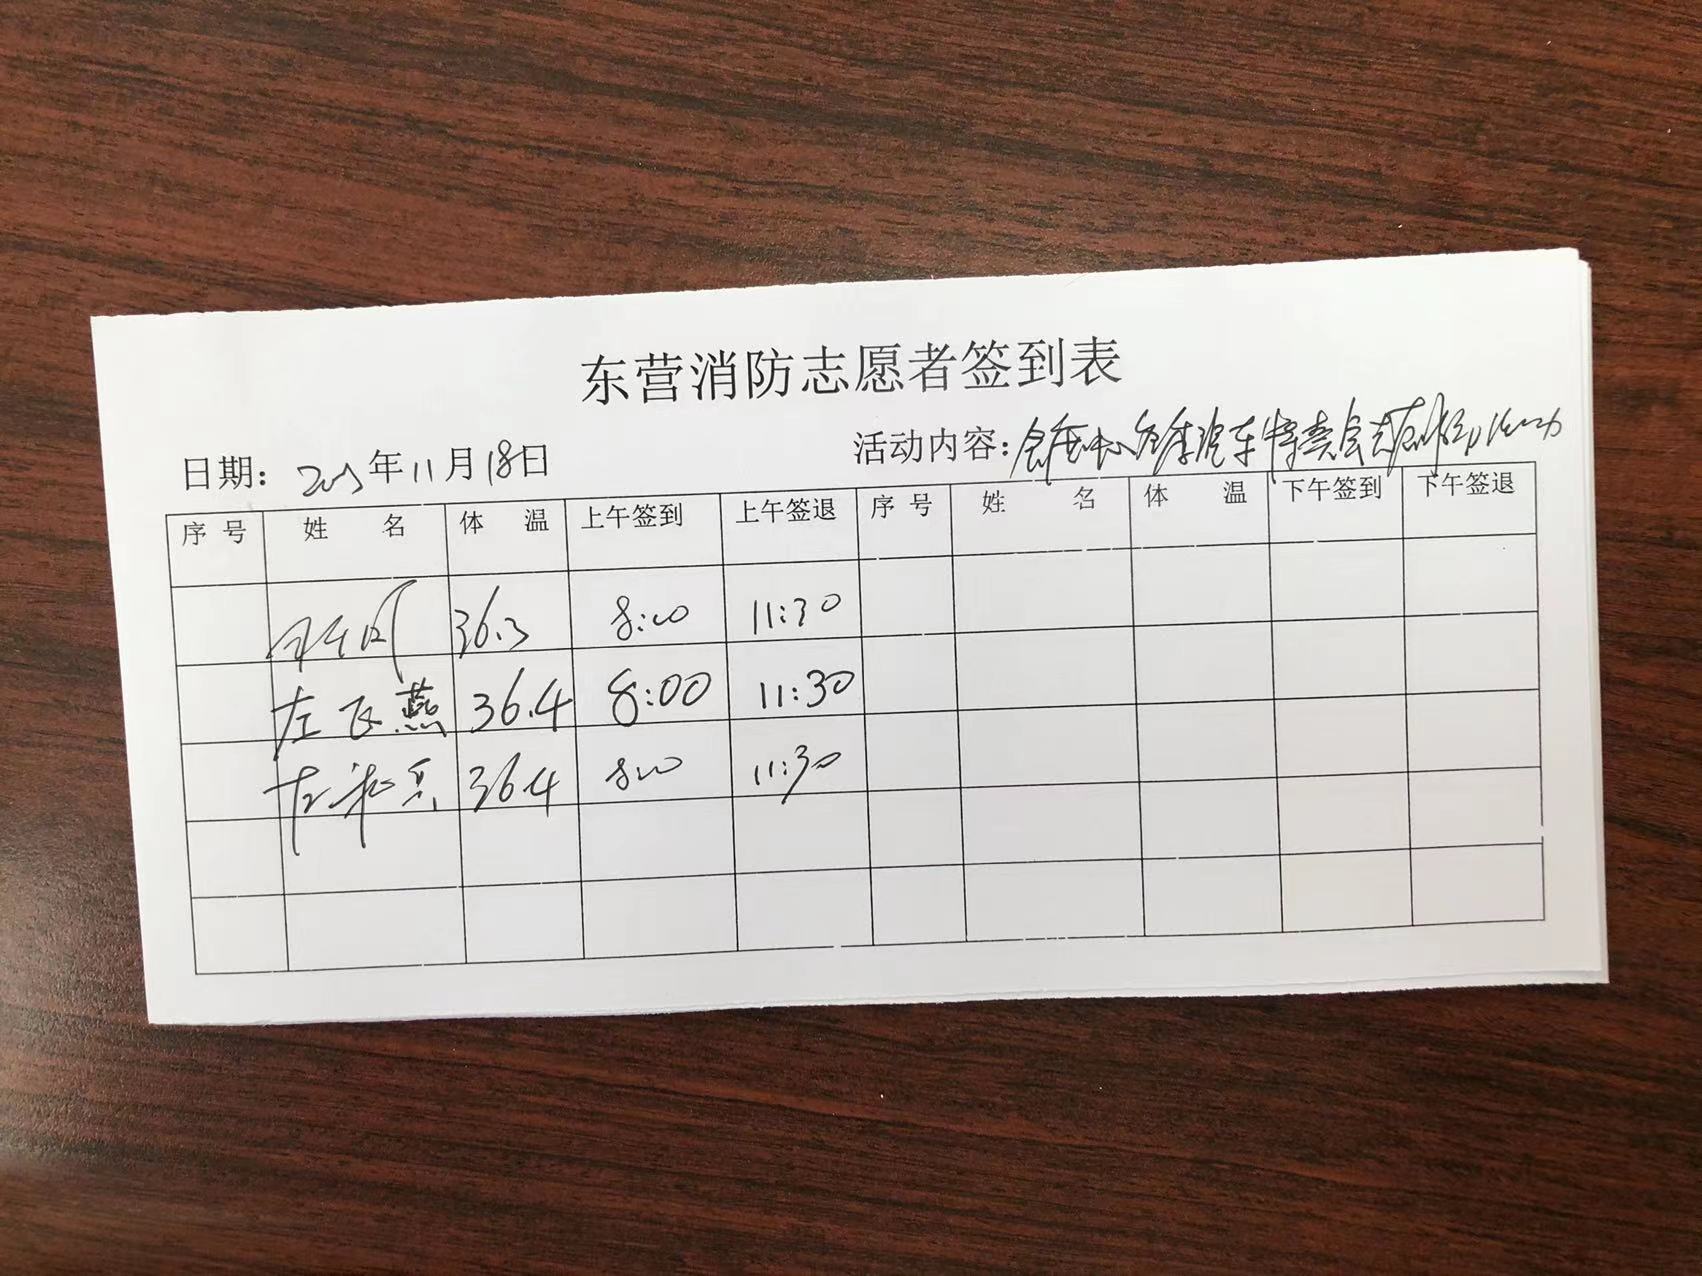 东营消防志愿者签到表
日期: 年11月18日 活动内容: 会展中心 季汽车博览会志愿
序号 姓名 体温 上午签到 上午签退 序号 姓名 体温 下午签到 下午签退
36.3 8:00 11:30
左飞燕 36.4 8:00 11:30
左 兵 36.4 8:00 11:30